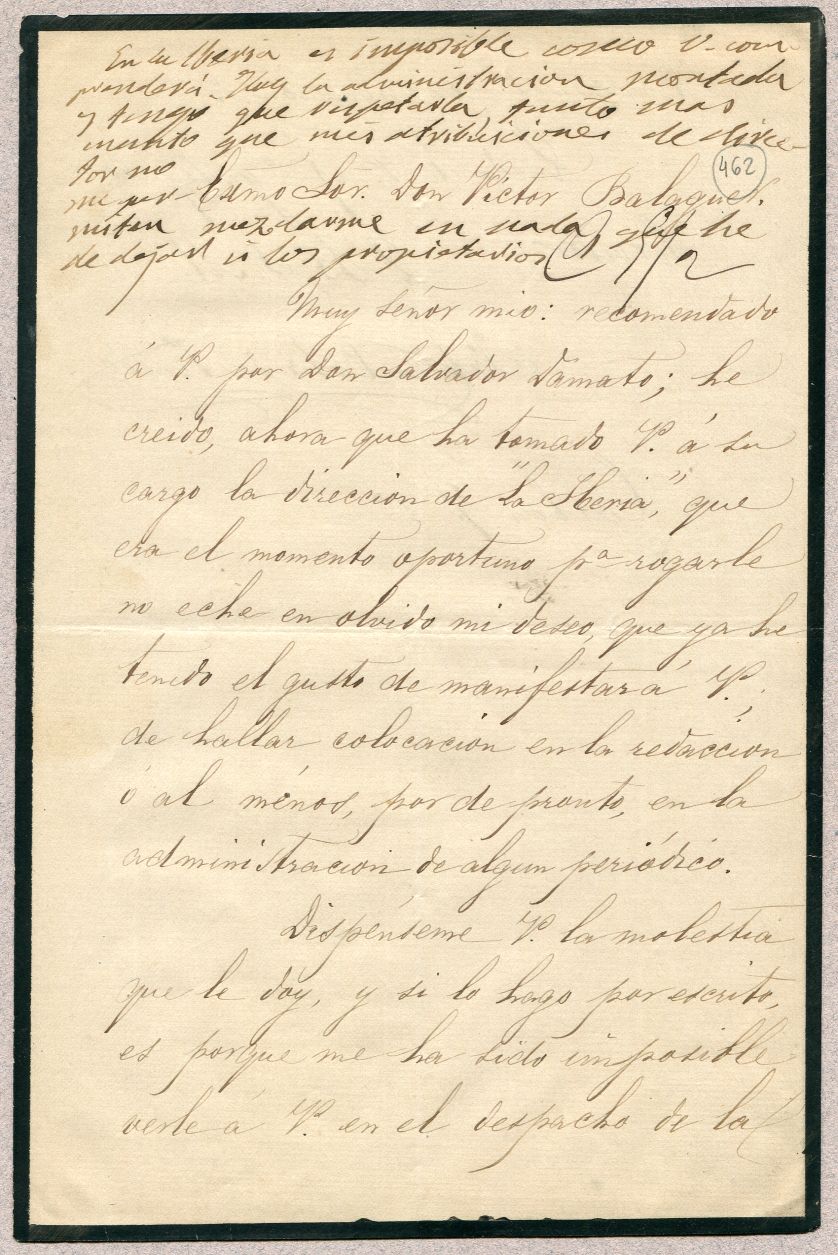 En la Iberia es imposible como V. com
prenderá. Hay la administracion montada
y tengo que respetarla, tanto mas
cuanto que mis atribuciones de direc-
tor no
me per
miten mezclarme en nada que he
de dejar á los propietarios
462
Exmo Sor. Don Victor Balaguer.
Muy señor mio: recomendado
á V. por Don Salvador Damato; he
creido, ahora que ha tomado V. á su
cargo la direccion de "la Iberia", que
era el momento oportuno pª rogarle
no eche en olvido mi deseo, que ya he
tenido el gusto de manifestar á V.;
de hallar colocacion en la redaccion
ó al ménos, por de pronto, en la
administracion de algun periódico.
Dispénseme V. la molestia
que le doy, y si lo hago por escrito,
es porque me ha sido imposible
verle á V. en el despacho de la